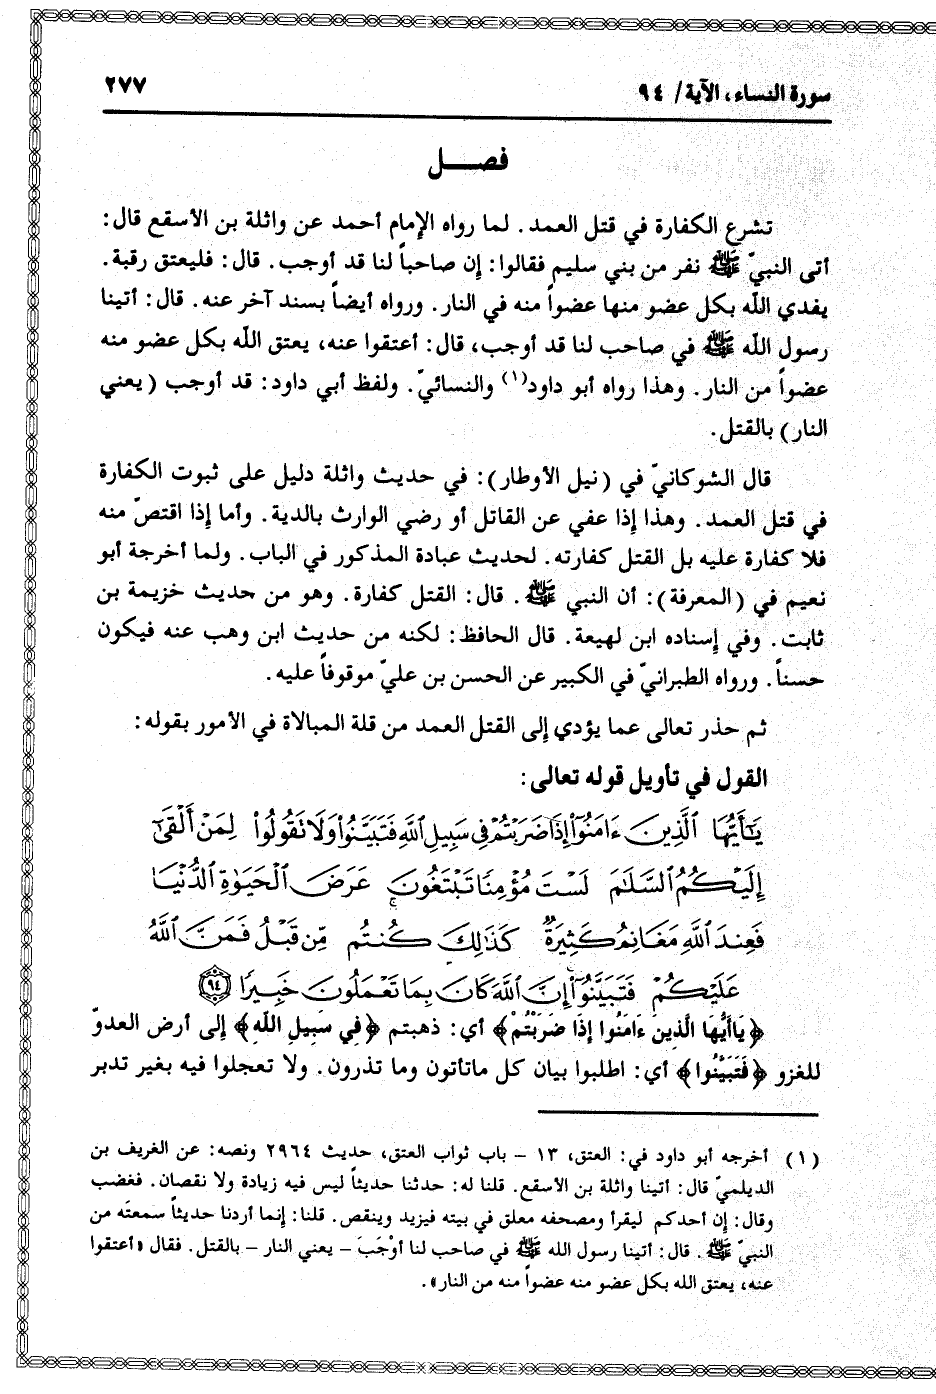 سورة النساء، الآية/ ٩٤ ٢٧٧
فصـــل
تشرع الكفارة في قتل العمد. لما رواه الإمام أحمد عن واثلة بن الأسقع قال:
أتى النبيّ ﷺ نفر من بني سليم فقالوا: إن صاحباً لنا قد أوجب. قال: فليعتق رقبة.
يفدي اللّه بكل عضو منها عضواً منه في النار. ورواه أيضاً بسند آخر عنه. قال: أتينا
رسول اللّه ﷺ في صاحب لنا قد أوجب، قال: أعتقوا عنه، يعتق اللّه بكل عضو منه
عضواً من النار. وهذا رواه أبو داود(١) والنسائيّ. ولفظ أبي داود: قد أوجب (يعني
النار) بالقتل.
قال الشوكانيّ في (نيل الأوطار): في حديث واثلة دليل على ثبوت الكفارة
في قتل العمد. وهذا إذا عفي عن القاتل أو رضي الوارث بالدية. وأما إذا اقتصّ منه
فلا كفارة عليه بل القتل كفارته. لحديث عبادة المذكور في الباب. ولما أخرجة أبو
نعيم في (المعرفة): أن النبي ﷺ. قال: القتل كفارة. وهو من حديث خزيمة بن
ثابت. وفي إسناده ابن لهيعة. قال الحافظ: لكنه من حديث ابن وهب عنه فيكون
حسناً. ورواه الطبرانيّ في الكبير عن الحسن بن عليّ موقوفاً عليه.
ثم حذر تعالى عما يؤدي إلى القتل العمد من قلة المبالاة في الأمور بقوله:
القول في تأويل قوله تعالى:
يَٰٓأَيُّهَا ٱلَّذِينَ ءَامَنُوٓا۟ إِذَا ضَرَبْتُمْ فِى سَبِيلِ ٱللَّهِ فَتَبَيَّنُوا۟ وَلَا نَقُولُوا۟ لِمَنْ أَلْقَىٰٓ
إِلَيْكُمُ ٱلسَّلَٰمَ لَسْتَ مُؤْمِنًا تَبْتَغُونَ عَرَضَ ٱلْحَيَوٰةِ ٱلدُّنْيَا
فَعِندَ ٱللَّهِ مَغَانِمُ كَثِيرَةٌ كَذَٰلِكَ كُنتُم مِّن قَبْلُ فَمَنَّ ٱللَّهُ
عَلَيْكُمْ فَتَبَيَّنُوٓا۟ إِنَّ ٱللَّهَ كَانَ بِمَا تَعْمَلُونَ خَبِيرًا ﴿٩٤﴾
﴿يَاأَيُّهَا الَّذِينَ ءَامَنُوا إِذَا ضَرَبْتُمْ﴾ أي: ذهبتم ﴿فِي سَبِيلِ اللَّهِ﴾ إلى أرض العدوّ
للغزو ﴿فَتَبَيَّنُوا﴾ أي: اطلبوا بيان كل ماتأتون وما تذرون. ولا تعجلوا فيه بغير تدبر
(١) أخرجه أبو داود في: العتق، ١٣ – باب ثواب العتق، حديث ٢٩٦٤ ونصه: عن الغريف بن
الديلميّ قال: أتينا واثلة بن الأسقع. قلنا له: حدثنا حديثاً ليس فيه زيادة ولا نقصان. فغضب
وقال: إن أحدكم ليقرأ ومصحفه معلق في بيته فيزيد وينقص. قلنا: إنما أردنا حديثاً سمعتَه من
النبيّ ﷺ. قال: أتينا رسول الله ﷺ في صاحب لنا أوْجَبَ – يعني النار – بالقتل. فقال «أعتقوا
عنه، يعتق الله بكل عضو منه عضواً منه من النار».